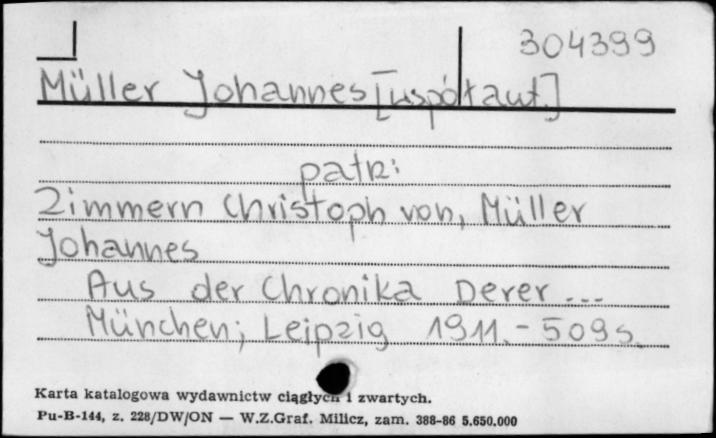 304399
Müller Johannes [współaut.]
patrz:
Zimmern Christoph von, Müller
Johannes
Aus der Chronika Derer ...
München; Leipzig 1911. - 509 s.
Karta katalogowa wydawnictw ciągłych i zwartych.
Pu-B-144, z. 228/DW/ON — W.Z.Graf. Milicz, zam. 388-86 5.650.000